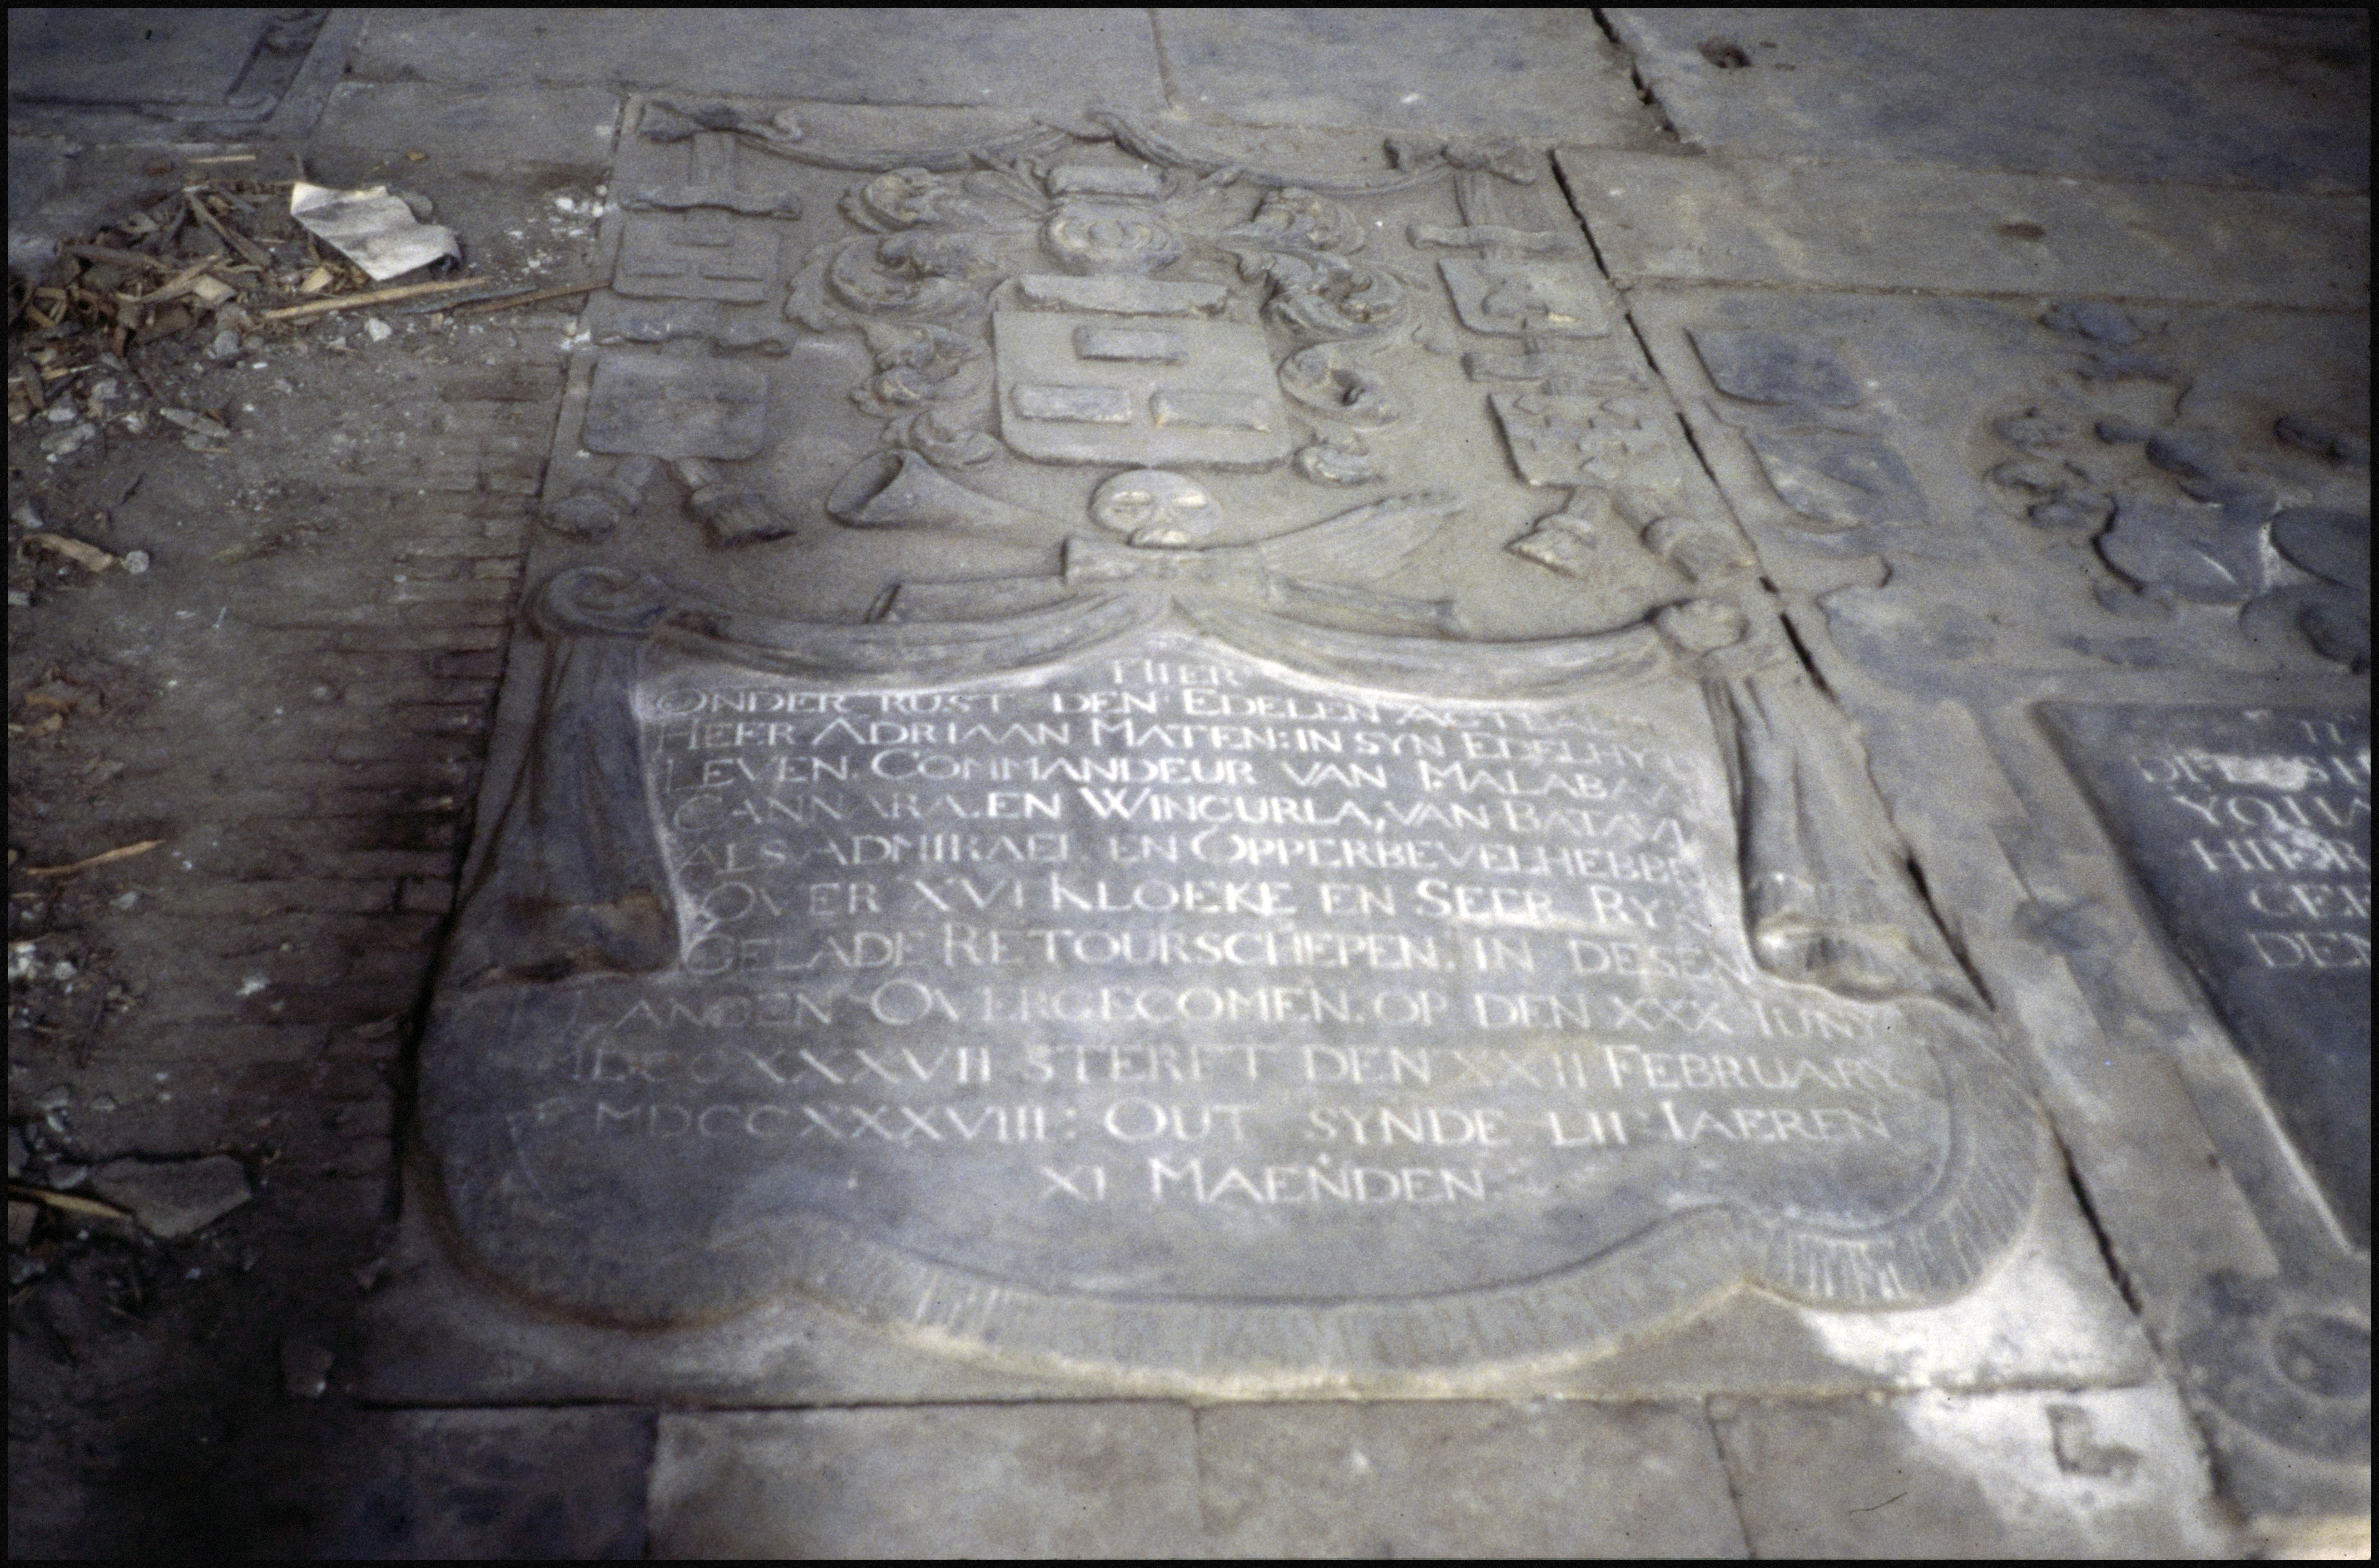 HIER
ONDER RUST DEN EDELEN
HEER ADRIAAN MATEN: IN SYN EDELHY
LEVEN COMMANDEUR VAN MALABA
CANNARA. EN WINGURLA, VAN BATAVIA
ALS ADMIRAEL EN OPPERBEVELHEBBE
OVER XVI KLOEKE EN SEER RY
GELADE RETOURSCHEPEN. IN DESEN
LANDEN OVERGECOMEN. OP DEN XXX IUNY
MDCCXXXVII STERFT DEN XXII FEBRUARY
MDCCXXXVIII: OUT SYNDE LII IAEREN
XI MAENDEN
YOHA
HIER
GEE
DEN